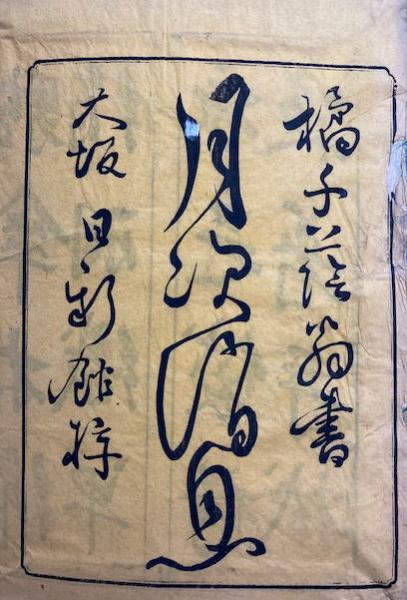 橘千蔭翁書
月次消息
大坂 日新館梓